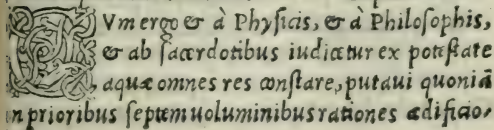 CVm ergo & à Physicis, & à Philosophis,
& ab sacerdotibus iudicetur ex potestate
aquæ omnes res constare, putaui quoniã
in prioribus septem uoluminibus rationes ædificio-